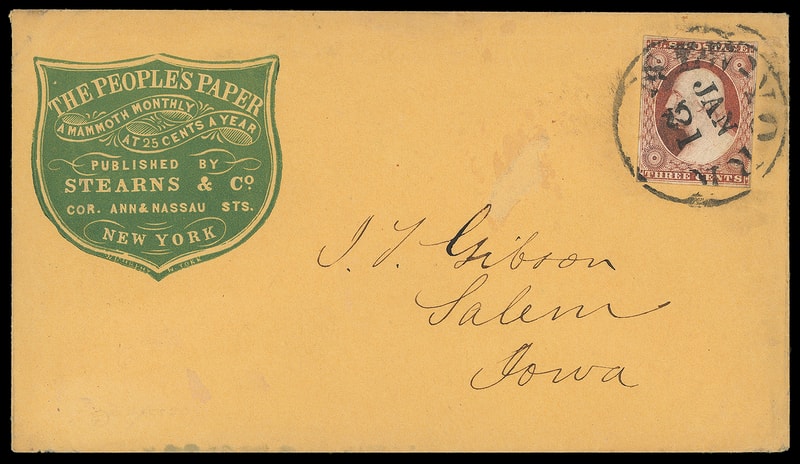 THE PEOPLE'S PAPER
A MAMMOTH MONTHLY
AT 25 CENTS A YEAR
PUBLISHED BY
STEARNS & Co.
COR. ANN & NASSAU STS.
NEW YORK
N. YORK
THREE CENTS
NEW-YORK
JAN
21
J. T. Gibson
Salem
Iowa